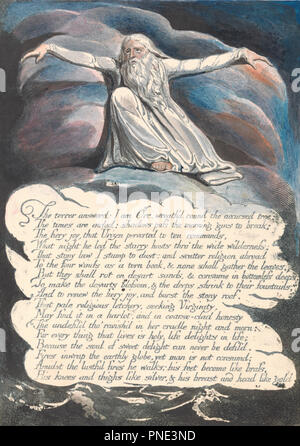 The terror answerd: I am Orc, wreath'd round the accursed tree:
The times are ended; shadows pass the morning gins to break;
The fiery joy, that Urizen perverted to ten commands,
What night he led the starry hosts thro' the wide wilderness:
That stony law I stamp to dust: and scatter religion abroad
To the four winds as a torn book, & none shall gather the leaves;
But they shall rot on desart sands, & consume in bottomless deeps;
To make the desarts blossom, & the deeps shrink to their fountains,
And to renew the fiery joy, and burst the stony roof.
That pale religious letchery, seeking Virginity,
May find it in a harlot, and in coarse-clad honesty
The undefil'd tho' ravish'd in her cradle night and morn:
For every thing that lives is holy, life delights in life;
Because the soul of sweet delight can never be defil'd.
Fires inwrap the earthly globe, yet man is not consumd;
Amidst the lustful fires he walks: his feet become like brass,
His knees and thighs like silver, & his breast and head like gold.
alamy
Image ID: PNE3ND
www.alamy.com